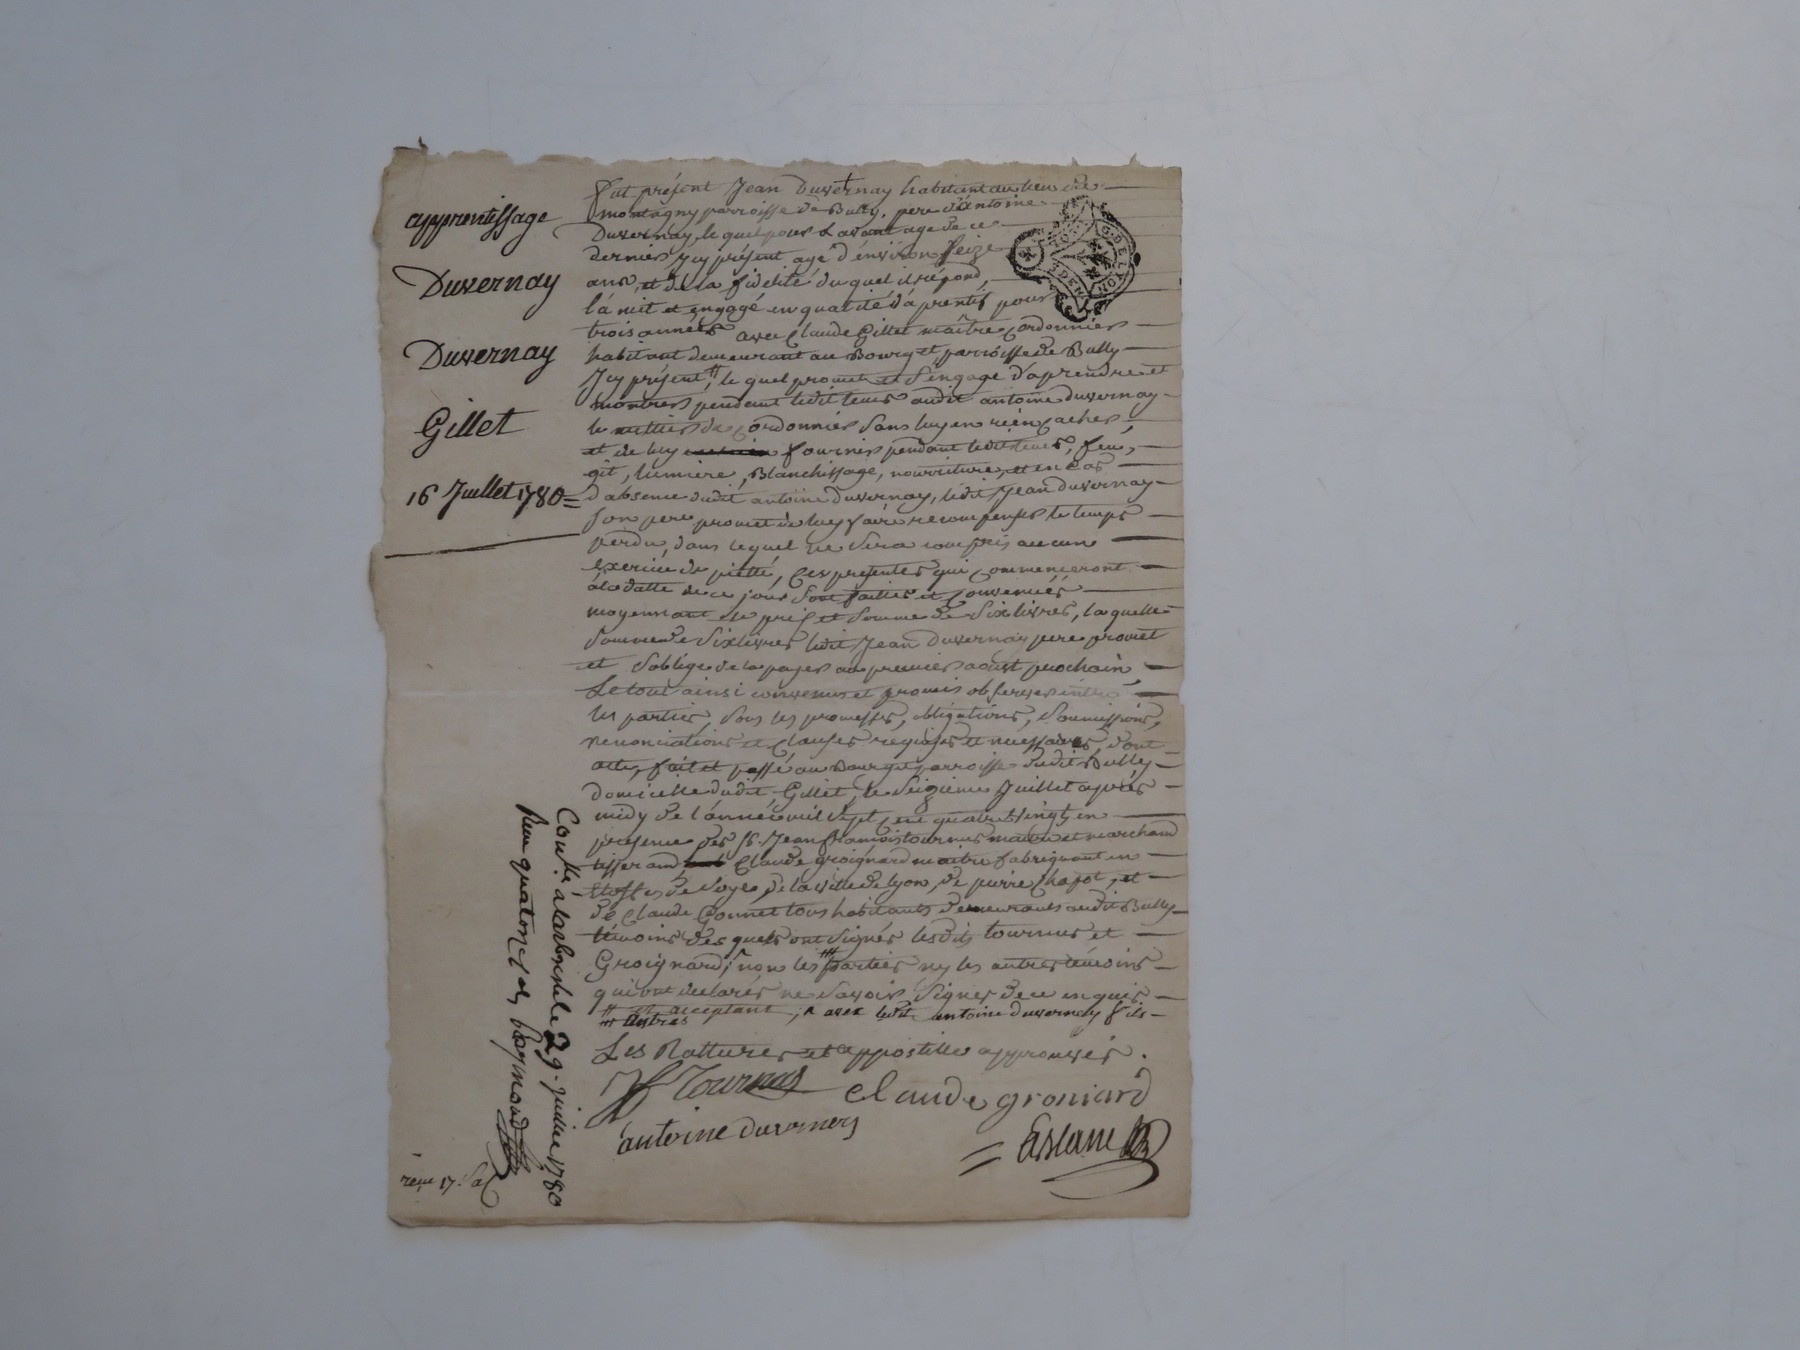 apprentissage
Duvernay
Duvernay
Gillet
16 Juillet 1780 =
Fut présent Jean Duvernay habitant au lieu de
montagny parroisse de Bully, pere d'antoine
Duvernay, le quel pour l'avantage de ce
dernier, icy présent agé d'environ seize
ans, et de la fidelité du quel il répond,
l'a mit et engagé en qualité d'aprentif pour
trois années avec Claude Gillet maître cordonnier
habitant demeurant au Bourg et parroisse de Bully
icy présent, le quel promet et s'engage d'aprendre et
montrer pendant ledit tems audit antoine duvernay
le mettier de cordonnier sans luy en rien cacher
et de luy fournir pendant ledit tems, feu,
git, lumière, Blanchissage, nourriture, et en cas
d'absence dudit antoine duvernay, ledit Jean duvernay
son pere promet de luy faire recompenser le temps
perdu, dans lequel ne sera compris aucun
exercice de pieté, ces presentes qui commenceront
à la datte de ce jour sont faittes et convenües
moyennant le prix et somme de six livres, laquelle
somme de six livres ledit Jean duvernay pere promet
et s'oblige de la payer au premier aoust prochain,
Le tout ainsi convenu et promis observer entre
les parties, sous les promesses, obligations, soumissions,
renonciations et clauses requises et nécessaires, dont
acte, fait et passé au Bourg et parroisse dudit Bully
domicille dudit Gillet, le seizieme Juillet après
midy de l'année mil sept cent quatre vingt en
presence des sr. Jean françois tournus maitre et marchand
tisserand, Claude groignard maitre fabriquant en
étoffes de soye, de la ville de lyon, de pierre Chapot, et
de Claude Gonnet tous habitants demeurants audit Bully
témoins desquels ont signés lesdits tournus et
Groignard, non les parties ny les autres témoins
qui ont declarés ne savoir signer de ce enquis
acceptant, avec ledit antoine duvernay fils
autres
Les Rattures et appostilles approuvés.
Jf Tournus
Claude groniard
antoine duvernay
Conllé a larbresle le 29. juillet 1780
Reçu quatorze s.
reçu 17. s.
G. DE LYON